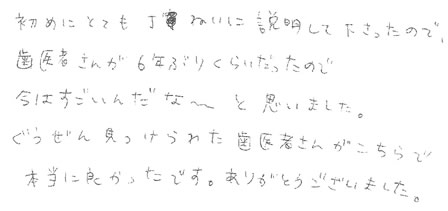 初めにとても丁寧ねいに説明して下さったので、
歯医者さんが6年ぶりくらいだったので
今はすごいんだな〜と思いました。
ぐうぜん見つけられた歯医者さんがこちらで
本当に良かったです。ありがとうございました。